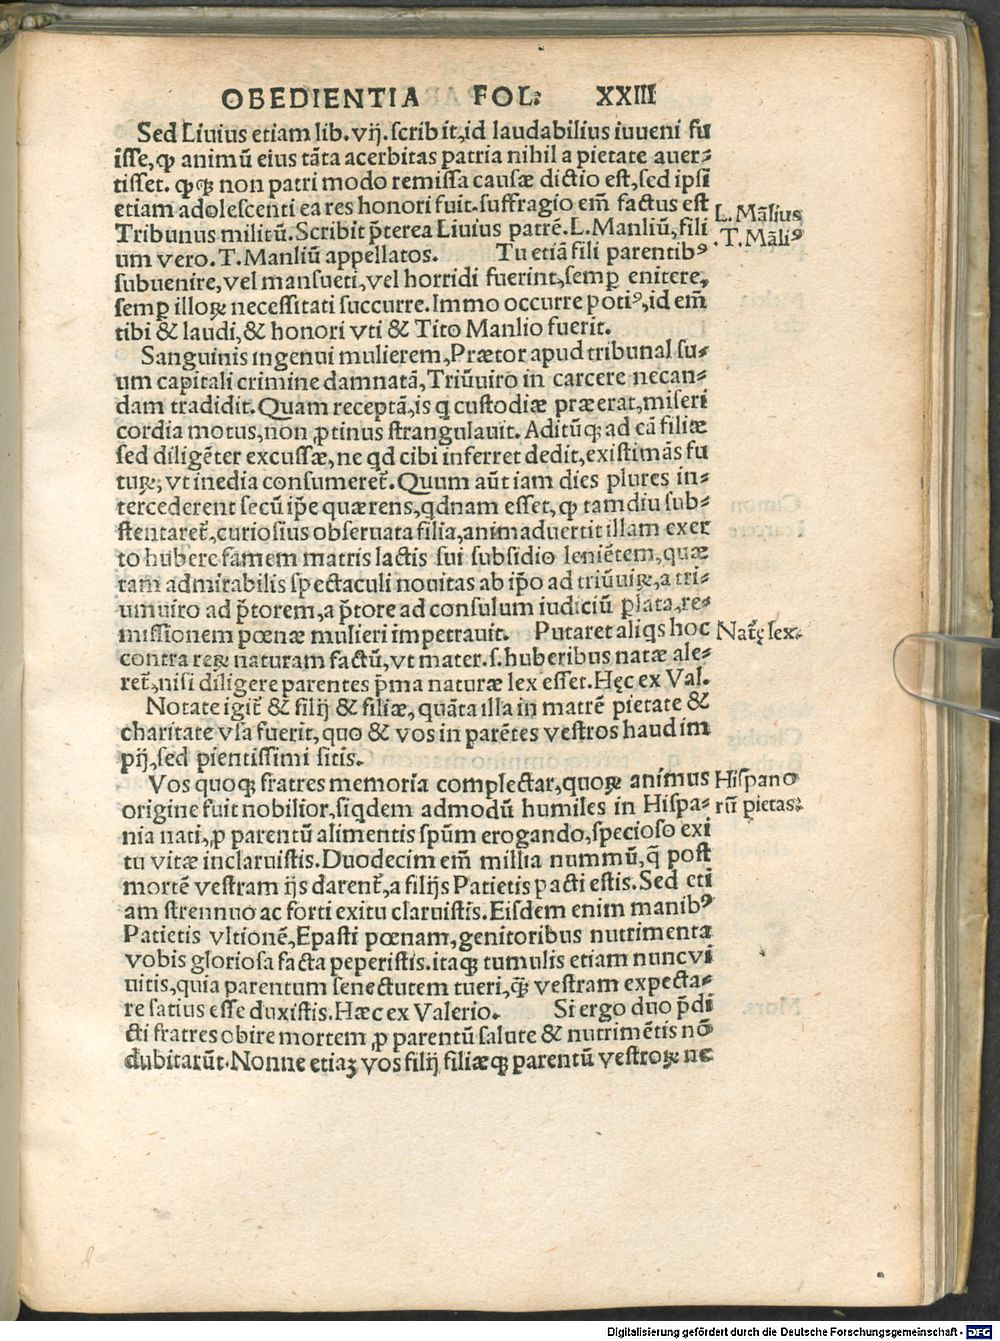 OBEDIENTIA FOL: XXIII
Sed Liuius etiam lib. vij. scribit, id laudabilius iuueni fu
isse, ꝙ animū eius tāta acerbitas patria nihil a pietate auer-
tisset. ꝙꝗ non patri modo remissa causæ dictio est, sed ipsi
etiam adolescenti ea res honori fuit. suffragio em̄ factus est
Tribunus militū. Scribit p̄terea Liuius patrē. L. Manliū, fili
um vero. T. Manliū appellatos. Tu etiā fili parentibꝰ
subuenire, vel mansueti, vel horridi fuerint, semꝑ enitere,
semꝑ illoꝝ necessitati succurre. Immo occurre potiꝰ, id em̄
tibi & laudi, & honori vti & Tito Manlio fuerit.
L. Māliꝰ
. T. Māliꝰ
Sanguinis ingenui mulierem, Prætor apud tribunal su-
um capitali crimine damnatā, Triūuiro in carcere necan-
dam tradidit. Quam receptā, is q custodiæ præerat, miseri
cordia motus, non ꝓtinus strangulauit. Aditūꝗ ad eā filiæ
sed diligēter excussæ, ne qd cibi inferret dedit, existimās fu
tuꝝ, vt inedia consumeret̄. Quum aūt iam dies plures in-
tercederent secū ip̄e quærens, qdnam esset, ꝙ tam diu sub-
stentaret̄, curiosius obseruata filia, animaduertit illam exer
to hubere famem matris lactis sui subsidio leniētem, quæ
tam admirabilis spectaculi nouitas ab ip̄o ad triūuiꝝ, a tri-
umuiro ad p̄torem, a p̄tore ad consulum iudiciū plata, re-
missionem pœnæ mulieri impetrauit. Putaret aliqs hoc
contra reꝝ naturam factū, vt mater. s. huberibus natæ ale-
ret̄, nisi diligere parentes p̄ma naturæ lex esset. Hęc ex Val.
Nat̄ę lex.
Notate igit̄ & filij & filiæ, quāta illa in matrē pietate &
charitate vsa fuerit, quo & vos in parētes vestros haud im
pij, sed pientissimi sitis.
Vos quoꝗ fratres memoria complectar, quoꝝ animus
origine fuit nobilior, siqdem admodū humiles in Hispa-
nia nati, ꝓ parentū alimentis spūm erogando, specioso exi
tu vitæ inclaruistis. Duodecim em̄ millia nummū, q̄ post
mortē vestram ijs darent̄, a filijs Patietis pacti estis. Sed eti
am strennuo ac forti exitu claruistis. Eisdem enim manibꝰ
Patietis vltionē, Epasti pœnam, genitoribus nutrimenta
vobis gloriosa facta peperistis. itaꝗ tumulis etiam nunc vi
uitis, quia parentum senectutem tueri, ꝗ̄ vestram expecta-
re satius esse duxistis. Hæc ex Valerio. Si ergo duo p̄di
cti fratres obire mortem ꝓ parentū salute & nutrimētis nō
dubitarūt. Nonne etiaꝫ vos filij filiæꝗ parentū vestroꝝ ne
Hispano
rū pietas.
Digitalisierung gefördert durch die Deutsche Forschungsgemeinschaft - DFG